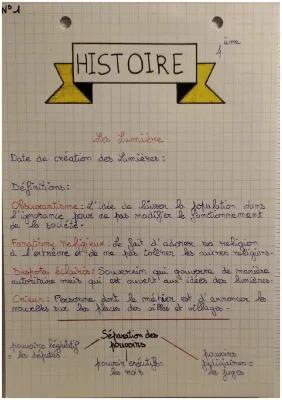 N°1
4ème
HISTOIRE
Les Lumière
Date de création des Lumières :
Définitions :
Obscurantisme : L'idée de laisser la population dans
l'ignorance pour ne pas modifier le fonctionnement
de la société.
Fanatisme religieux : Le fait d'adorer sa religion
à l'extrême et de ne pas tolérer les autres religions.
Despote éclairés : Souverain qui gouverne de manière
autoritaire mais qui est ouvert aux idées des lumières.
Crieur : Personne dont le métier est d'annoncer les
nouvelles sur les places des villes et villages.
Séparation des
pouvoirs
pouvoirs législatif
= les députés
pouvoir exécutif
les rois
pouvoirs
judiciaires =
les juges